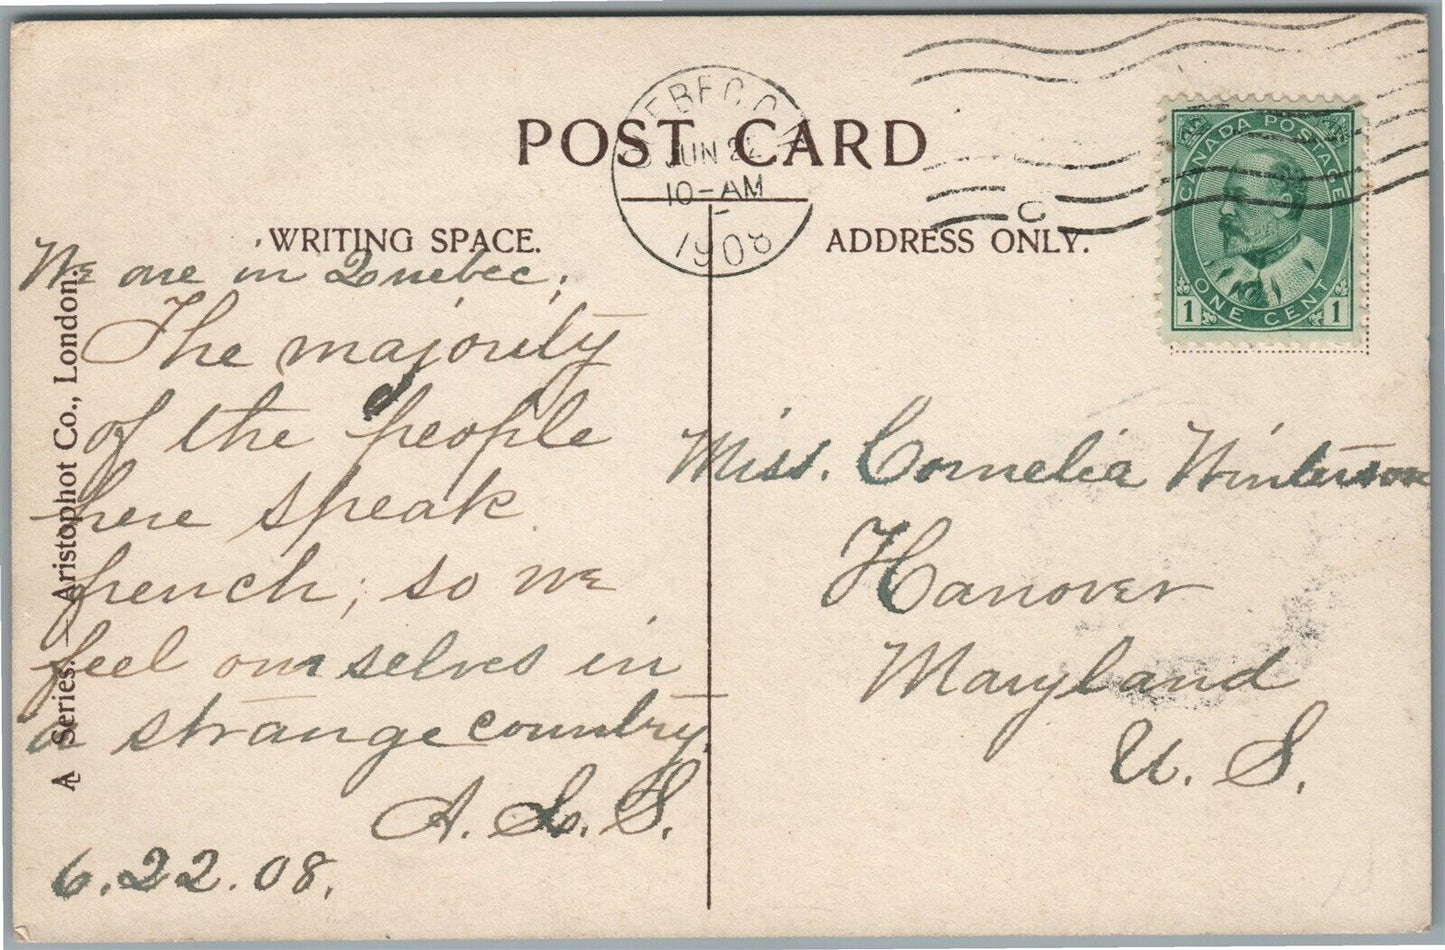 POST CARD
EBEC CAN
JUN 22
10-AM
1908
C
CANADA POSTAGE
1 ONE CENT 1
WRITING SPACE.
ADDRESS ONLY.
We are in Quebec,
The majority
of the people
here speak
french; so we
feel ourselves in
a strange country.
A. L. S.
6.22.08.
A Series. — Aristophot Co., London.
Miss. Cornelia Winterson
Hanover
Maryland
U. S.